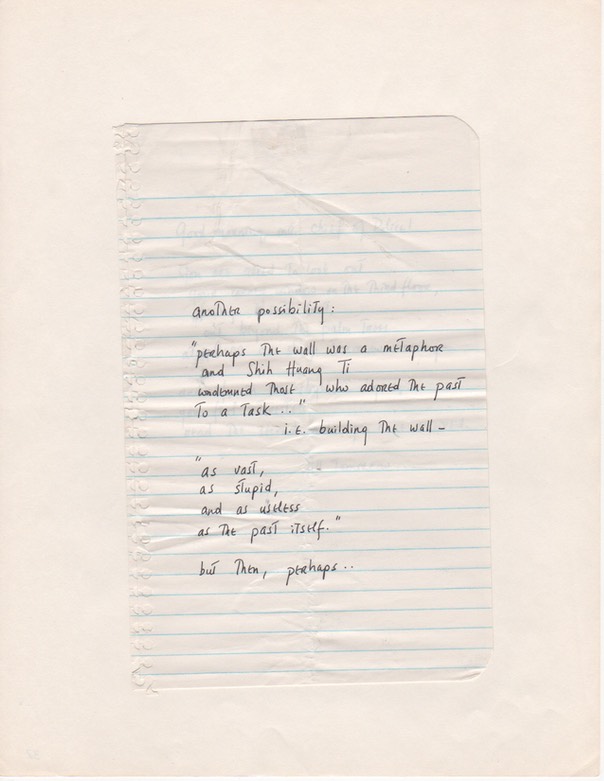 another possibility:
"perhaps the wall was a metaphor
and Shih Huang Ti
condemned those who adored the past
to a task . ."
i.e. building the wall –
"as vast,
as stupid,
and as useless
as the past itself."
but then, perhaps . .